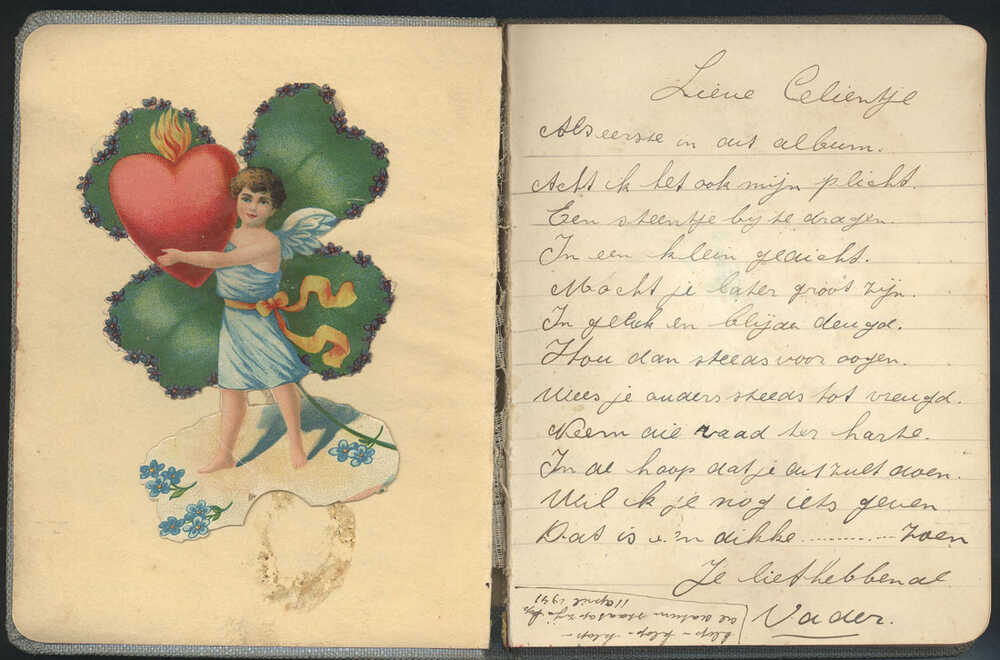 Lieve Celientje
Als eerste in dit album.
Acht ik het ook mijn plicht.
Een steentje bij te dragen
In een klein gedicht.
Mocht je later groot zijn.
In geluk en blijde deugd.
Hou dan steeds voor oogen.
Wees je ouders steeds tot vreugd.
Neem die raad ter harte.
In de hoop dat je dit zult doen.
Wil ik je nog iets geven
Dat is 'n dikke .......... zoen
Je liefhebbende
Vader.
klep - klep - klep -
de datum staat op
11 april 1941